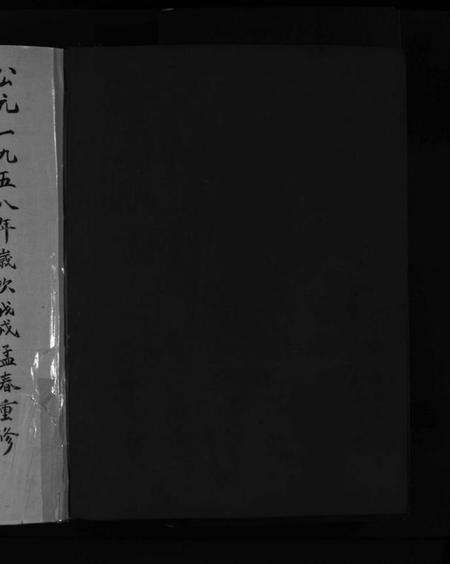 公元一九五八年歲次戊戌孟春重修